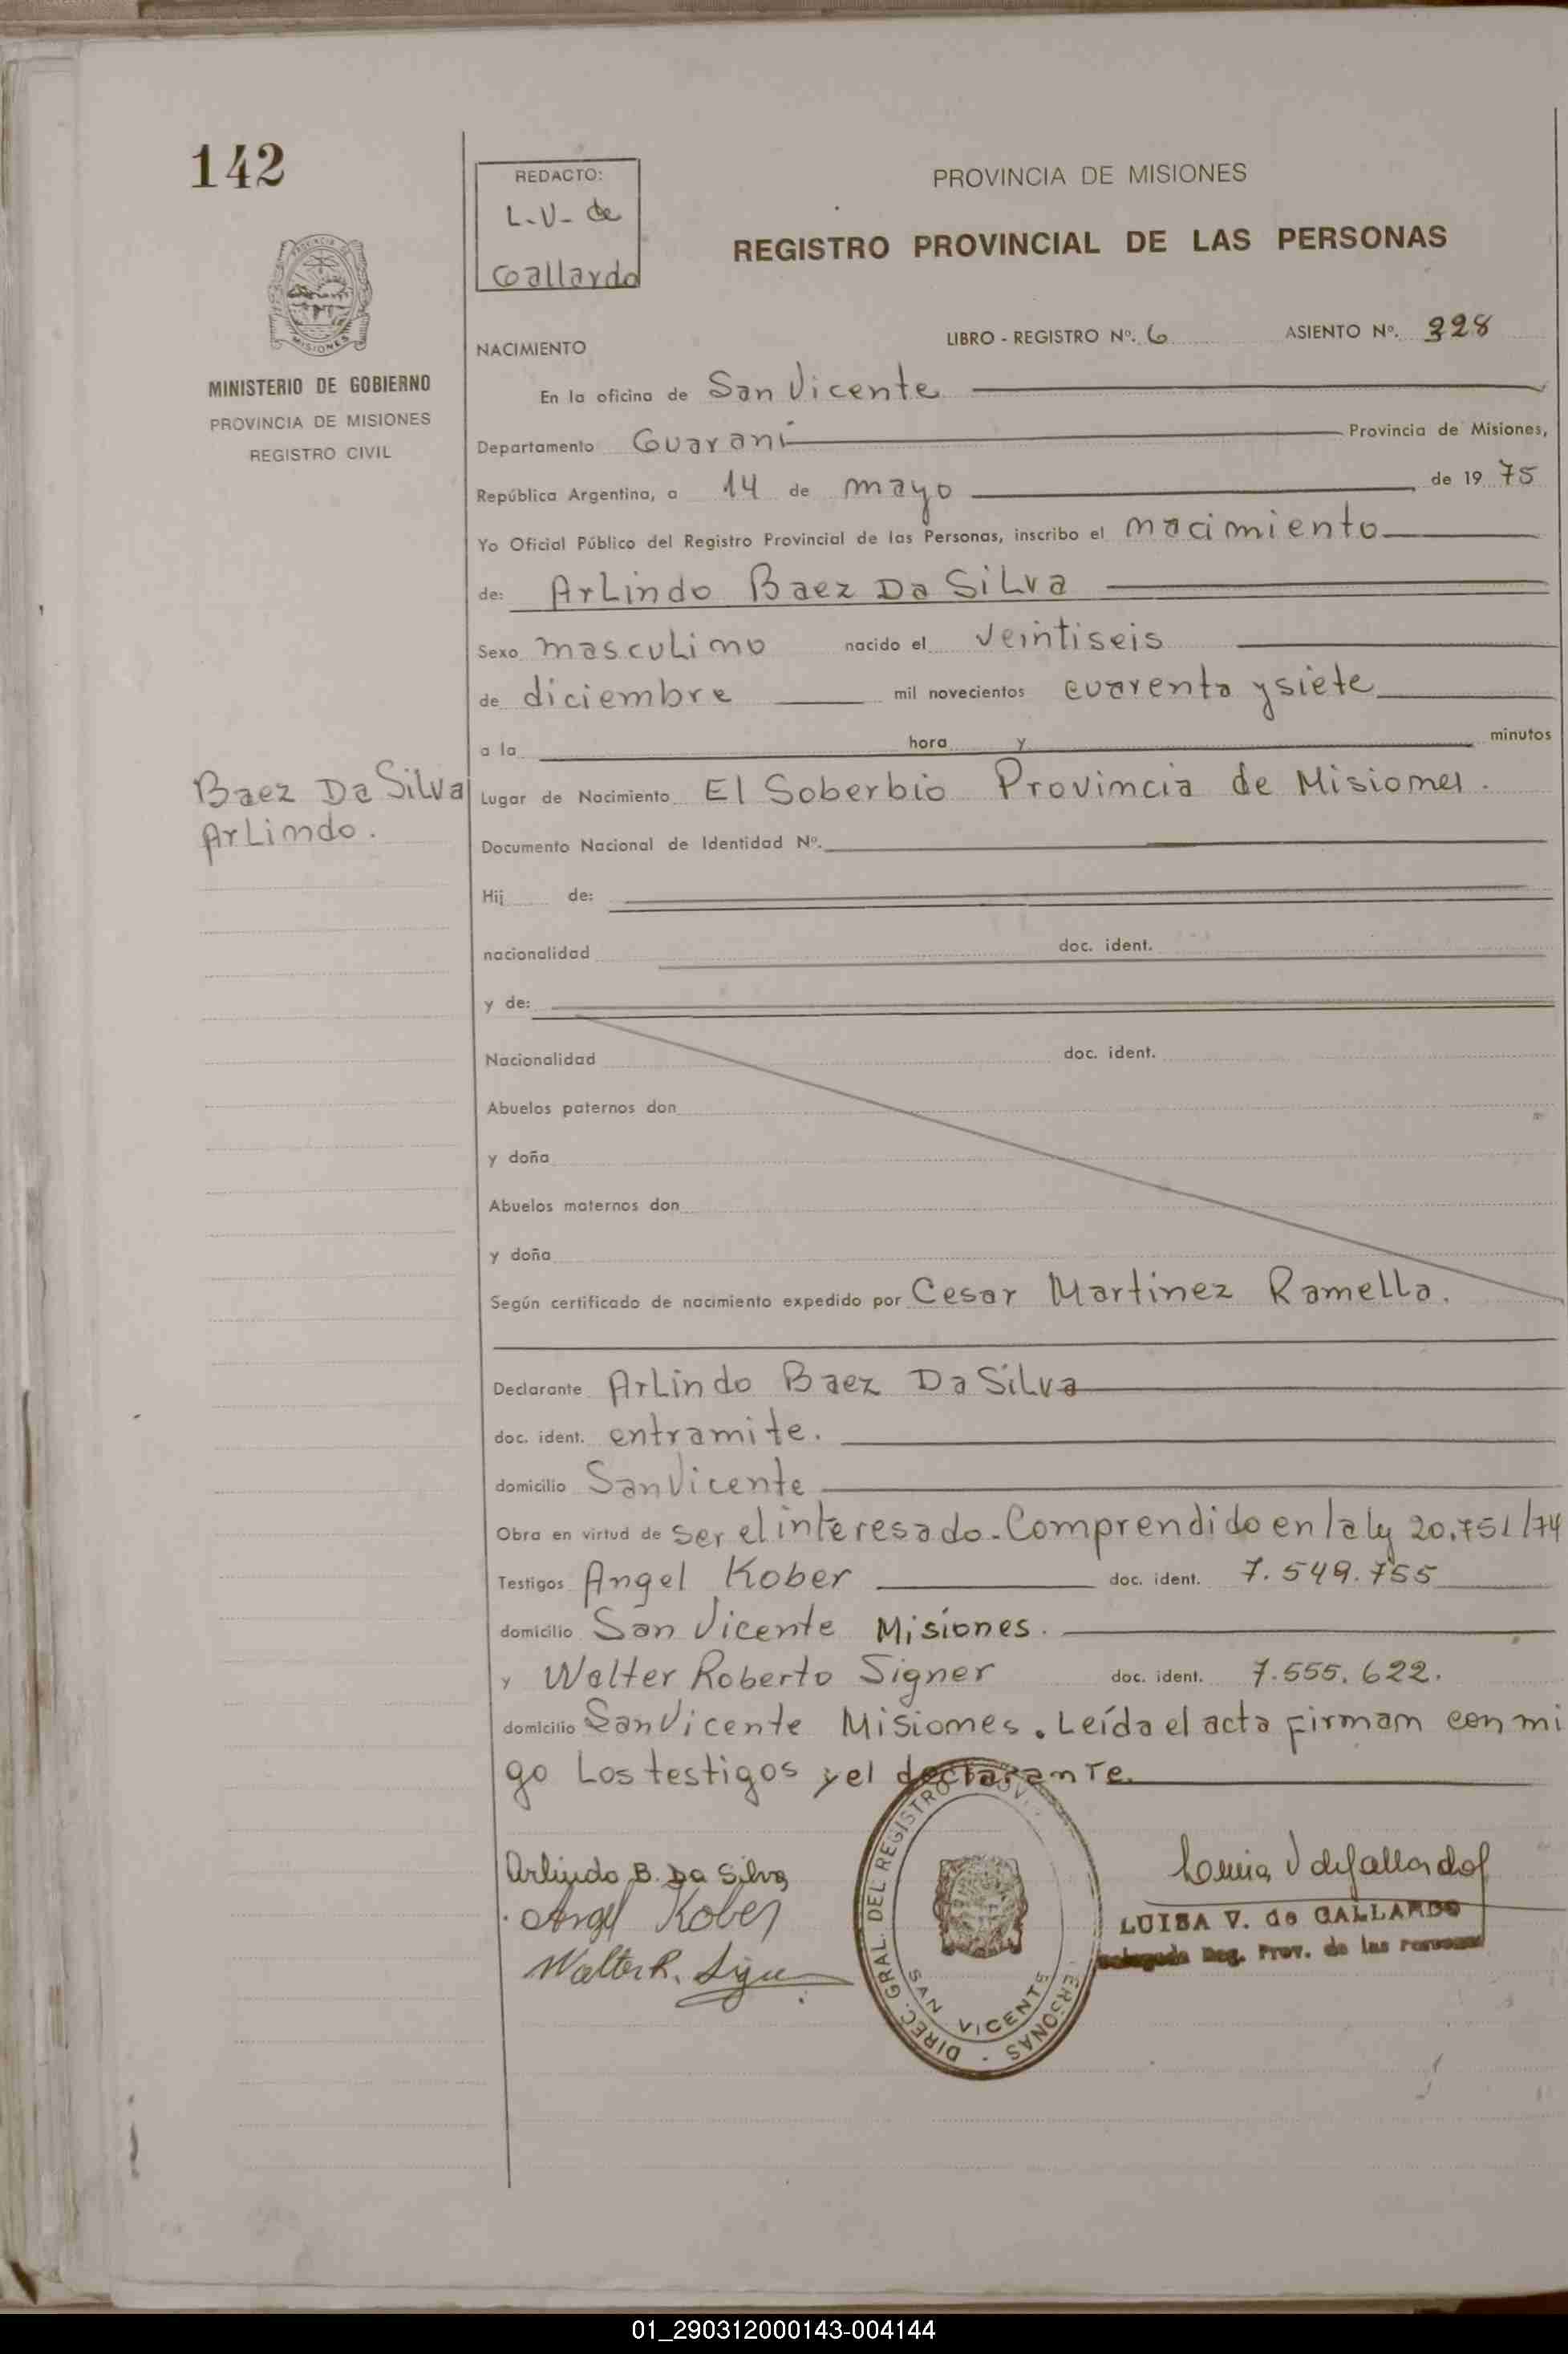 142
REDACTO:
L.V. de
Gallardo
PROVINCIA DE MISIONES
REGISTRO PROVINCIAL DE LAS PERSONAS
MISIONES
MINISTERIO DE GOBIERNO
PROVINCIA DE MISIONES
REGISTRO CIVIL
NACIMIENTO
LIBRO - REGISTRO Nº. 6 ASIENTO Nº. 328
En la oficina de San Vicente
Departamento Guaraní Provincia de Misiones,
República Argentina, a 14 de mayo de 19 75
Yo Oficial Público del Registro Provincial de las Personas, inscribo el nacimiento
de: Arlindo Baez Da Silva
Sexo masculino nacido el veintiseis
de diciembre mil novecientos cuarenta y siete
a la hora y minutos
Baez Da Silva
Arlindo.
Lugar de Nacimiento El Soberbio Provincia de Misiones.
Documento Nacional de Identidad Nº.
Hij de:
nacionalidad doc. ident.
y de:
Nacionalidad doc. ident.
Abuelos paternos don
y doña
Abuelos maternos don
y doña
Según certificado de nacimiento expedido por Cesar Martinez Ramella.
Declarante Arlindo Baez Da Silva
doc. ident. entramite.
domicilio San Vicente
Obra en virtud de ser el interesado. Comprendido en la ley 20.751/74
Testigos Angel Kober doc. ident. 7.549.755
domicilio San Vicente Misiones.
y Walter Roberto Signer doc. ident. 7.555.622.
domicilio San Vicente Misiones. Leída el acta firman conmi
go los testigos y el declarante.
Arlindo B. Da Silva
Angel Kober
Walter R. Signer
DIREC. GRAL. DEL REGISTRO PERSONAS
SAN VICENTE
Luisa V de Gallardo
LUISA V. de GALLARDO
Delegada Reg. Prov. de las Personas
01_290312000143-004144